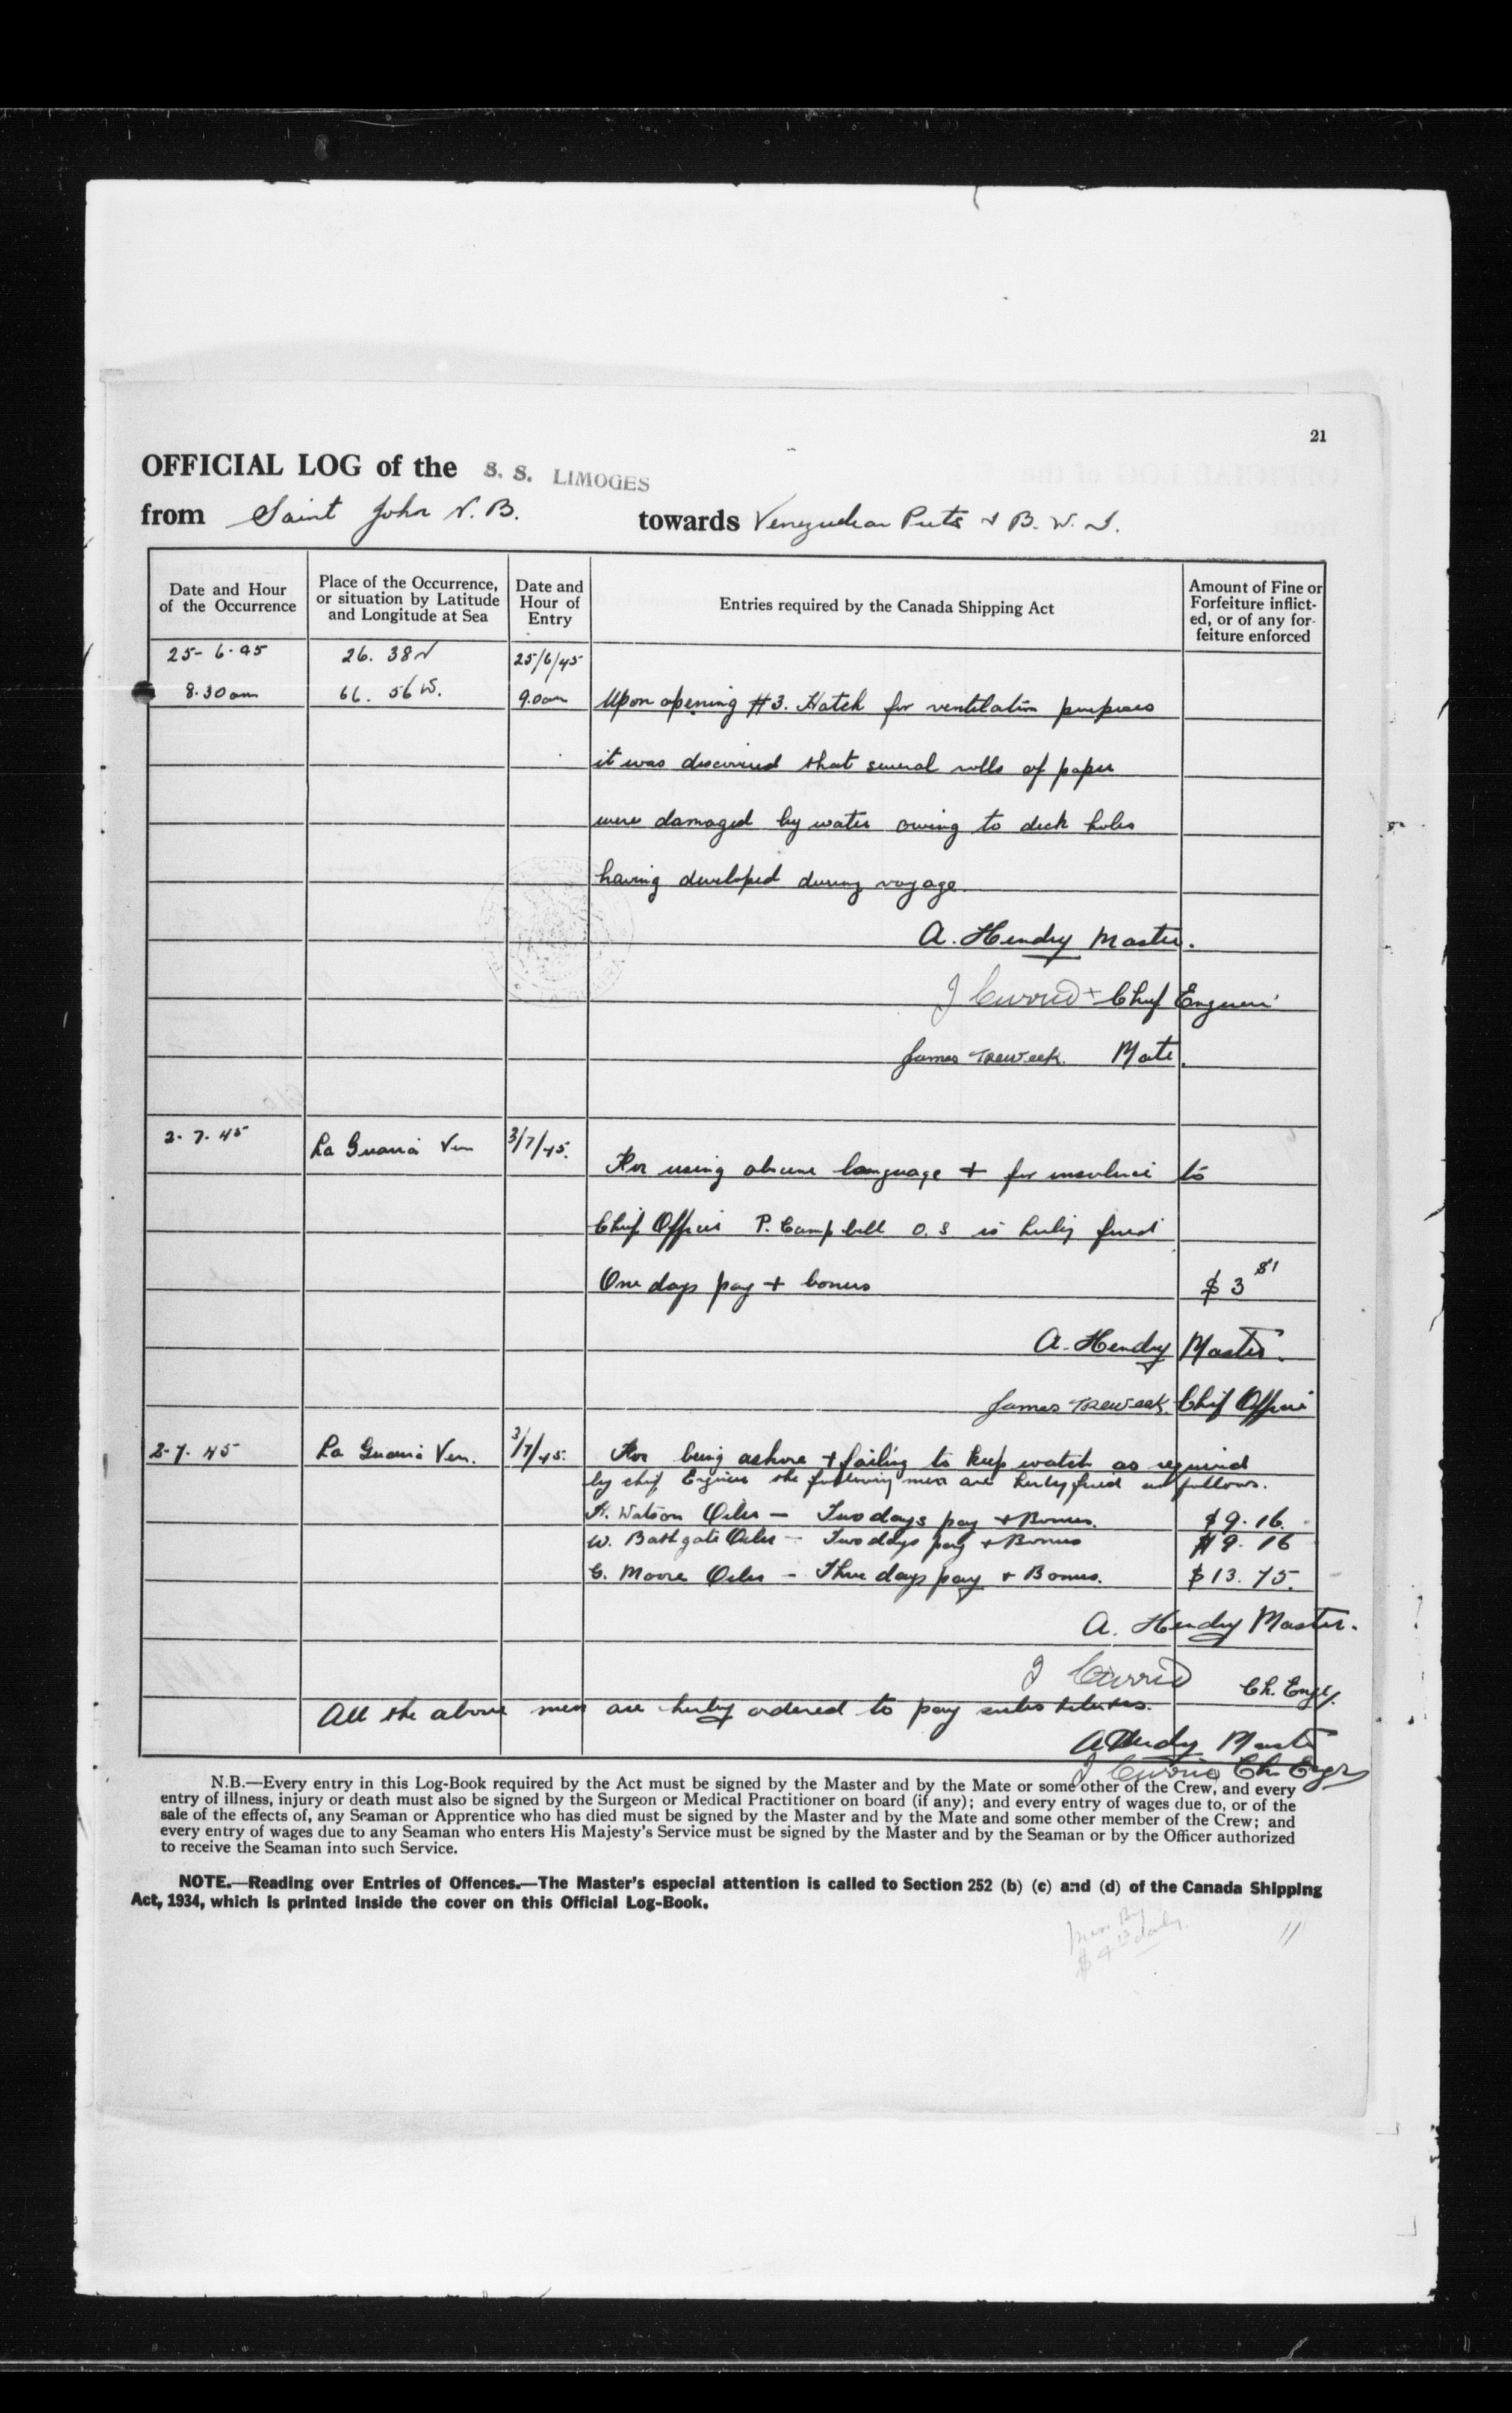 21
OFFICIAL LOG of the S. S. LIMOGES
from Saint John N. B. towards Venezuelan Ports & B. W. I.
Date and Hour of the Occurrence
Place of the Occurrence, or situation by Latitude and Longitude at Sea
Date and Hour of Entry
Entries required by the Canada Shipping Act
Amount of Fine or Forfeiture inflict-ed, or of any for-feiture enforced
25-6-45 26. 38 N 25/6/45
8.30 am 66. 56 W. 9.0 am Upon opening #3. Hatch for ventilation purposes
it was discovered that several rolls of paper
were damaged by water owing to deck holes
having developed during voyage.
A. Hendry Master.
J Currie Chief Engineer
James Treweek. Mate.
2-7-45 La Guaira Ven 3/7/45. For using obscene language + for insolence to
Chief Officer P. Campbell O.S is hereby fined
One days pay + bonus $3 81
A. Hendry Master.
James Treweek. Chief Officer
2-7-45 La Guaira Ven. 3/7/45. For being ashore + failing to keep watch as required
by chief Engineer the following men are hereby fined as follows.
Watson Oiler — Two days pay + Bonus. $9.16.
W. Bathgate Oiler — Two days pay + Bonus $9.16
G. Moore Oiler — Three days pay + Bonus. $13.75.
A. Hendry Master.
J Currie Ch. Engr.
All the above men are hereby ordered to pay substitutes.
A Hendry Master
J Currie Ch. Engr
N.B.—Every entry in this Log-Book required by the Act must be signed by the Master and by the Mate or some other of the Crew, and every
entry of illness, injury or death must also be signed by the Surgeon or Medical Practitioner on board (if any); and every entry of wages due to, or of the
sale of the effects of, any Seaman or Apprentice who has died must be signed by the Master and by the Mate and some other member of the Crew; and
every entry of wages due to any Seaman who enters His Majesty's Service must be signed by the Master and by the Seaman or by the Officer authorized
to receive the Seaman into such Service.
NOTE.—Reading over Entries of Offences.—The Master's especial attention is called to Section 252 (b) (c) and (d) of the Canada Shipping
Act, 1934, which is printed inside the cover on this Official Log-Book.